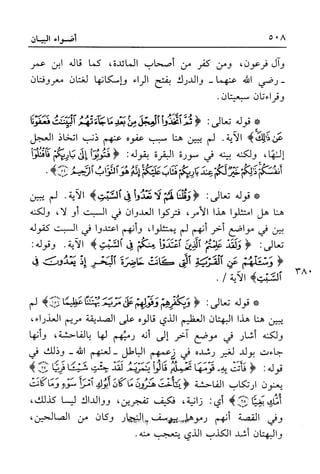 ٥٠٨ أضواء البيان
وآل فرعون، ومن كفر من أصحاب المائدة، كما قاله ابن عمر
ـ رضي الله عنهما ـ والدرك بفتح الراء وإسكانها لغتان معروفتان
وقراءتان سبعيتان.
* قوله تعالى: ﴿ ثُمَّ اتَّخَذُوا الْعِجْلَ مِنْ بَعْدِ مَا جَاءَتْهُمُ الْبَيِّنَتُ فَعَفَوْنَا
عَنْ ذَلِكَ ﴾ الآية. لم يبين هنا سبب عفوه عنهم ذنب اتخاذ العجل
إلٰهًا، ولكنه بينه في سورة البقرة بقوله: ﴿ فَتُوبُوا إِلَى بَارِئِكُمْ فَاقْتُلُوا
أَنْفُسَكُمْ ذَلِكُمْ خَيْرٌ لَكُمْ عِنْدَ بَارِئِكُمْ فَتَابَ عَلَيْكُمْ إِنَّهُ هُوَ التَّوَّابُ الرَّحِيمُ ﴾
* قوله تعالى: ﴿ وَقُلْنَا لَهُمْ لَا تَعْدُوا فِي السَّبْتِ ﴾ الآية. لم يبين
هنا هل امتثلوا هذا الأمر، فتركوا العدوان في السبت أو لا، ولكنه
بين في مواضع أخر أنهم لم يمتثلوا، وأنهم اعتدوا في السبت كقوله
تعالى: ﴿ وَلَقَدْ عَلِمْتُمُ الَّذِينَ اعْتَدَوْا مِنْكُمْ فِي السَّبْتِ ﴾ الآية. وقوله:
﴿ وَسْئَلْهُمْ عَنِ الْقَرْيَةِ الَّتِي كَانَتْ حَاضِرَةَ الْبَحْرِ إِذْ يَعْدُونَ فِي
السَّبْتِ ﴾ الآية / .
* قوله تعالى: ﴿ وَبِكُفْرِهِمْ وَقَوْلِهِمْ عَلَى مَرْيَمَ بُهْتَنًا عَظِيمًا ﴾ لم
يبين هنا هذا البهتان العظيم الذي قالوه على الصديقة مريم العذراء،
ولكنه أشار في موضع آخر إلى أنه رميُهم لها بالفاحشة، وأنها
جاءت بولد لغير رشده في زعمهم الباطل ـ لعنهم الله ـ وذلك في
قوله: ﴿ فَأَتَتْ بِهِ قَوْمَهَا تَحْمِلُهُ قَالُوا يَمَرْيَمُ لَقَدْ جِئْتِ شَيْئًا فَرِيًّا ﴾
يعنون ارتكاب الفاحشة ﴿ يَأُخْتَ هَرُونَ مَا كَانَ أَبُوكِ امْرَأَ سَوْءٍ وَمَا كَانَتْ
أُمُّكِ بَغِيًّا ﴾ أي: زانية، فكيف تفجرين، ووالداك ليسا كذلك،
وفي القصة أنهم رموها بيوسف النجار وكان من الصالحين،
والبهتان أشد الكذب الذي يتعجب منه.